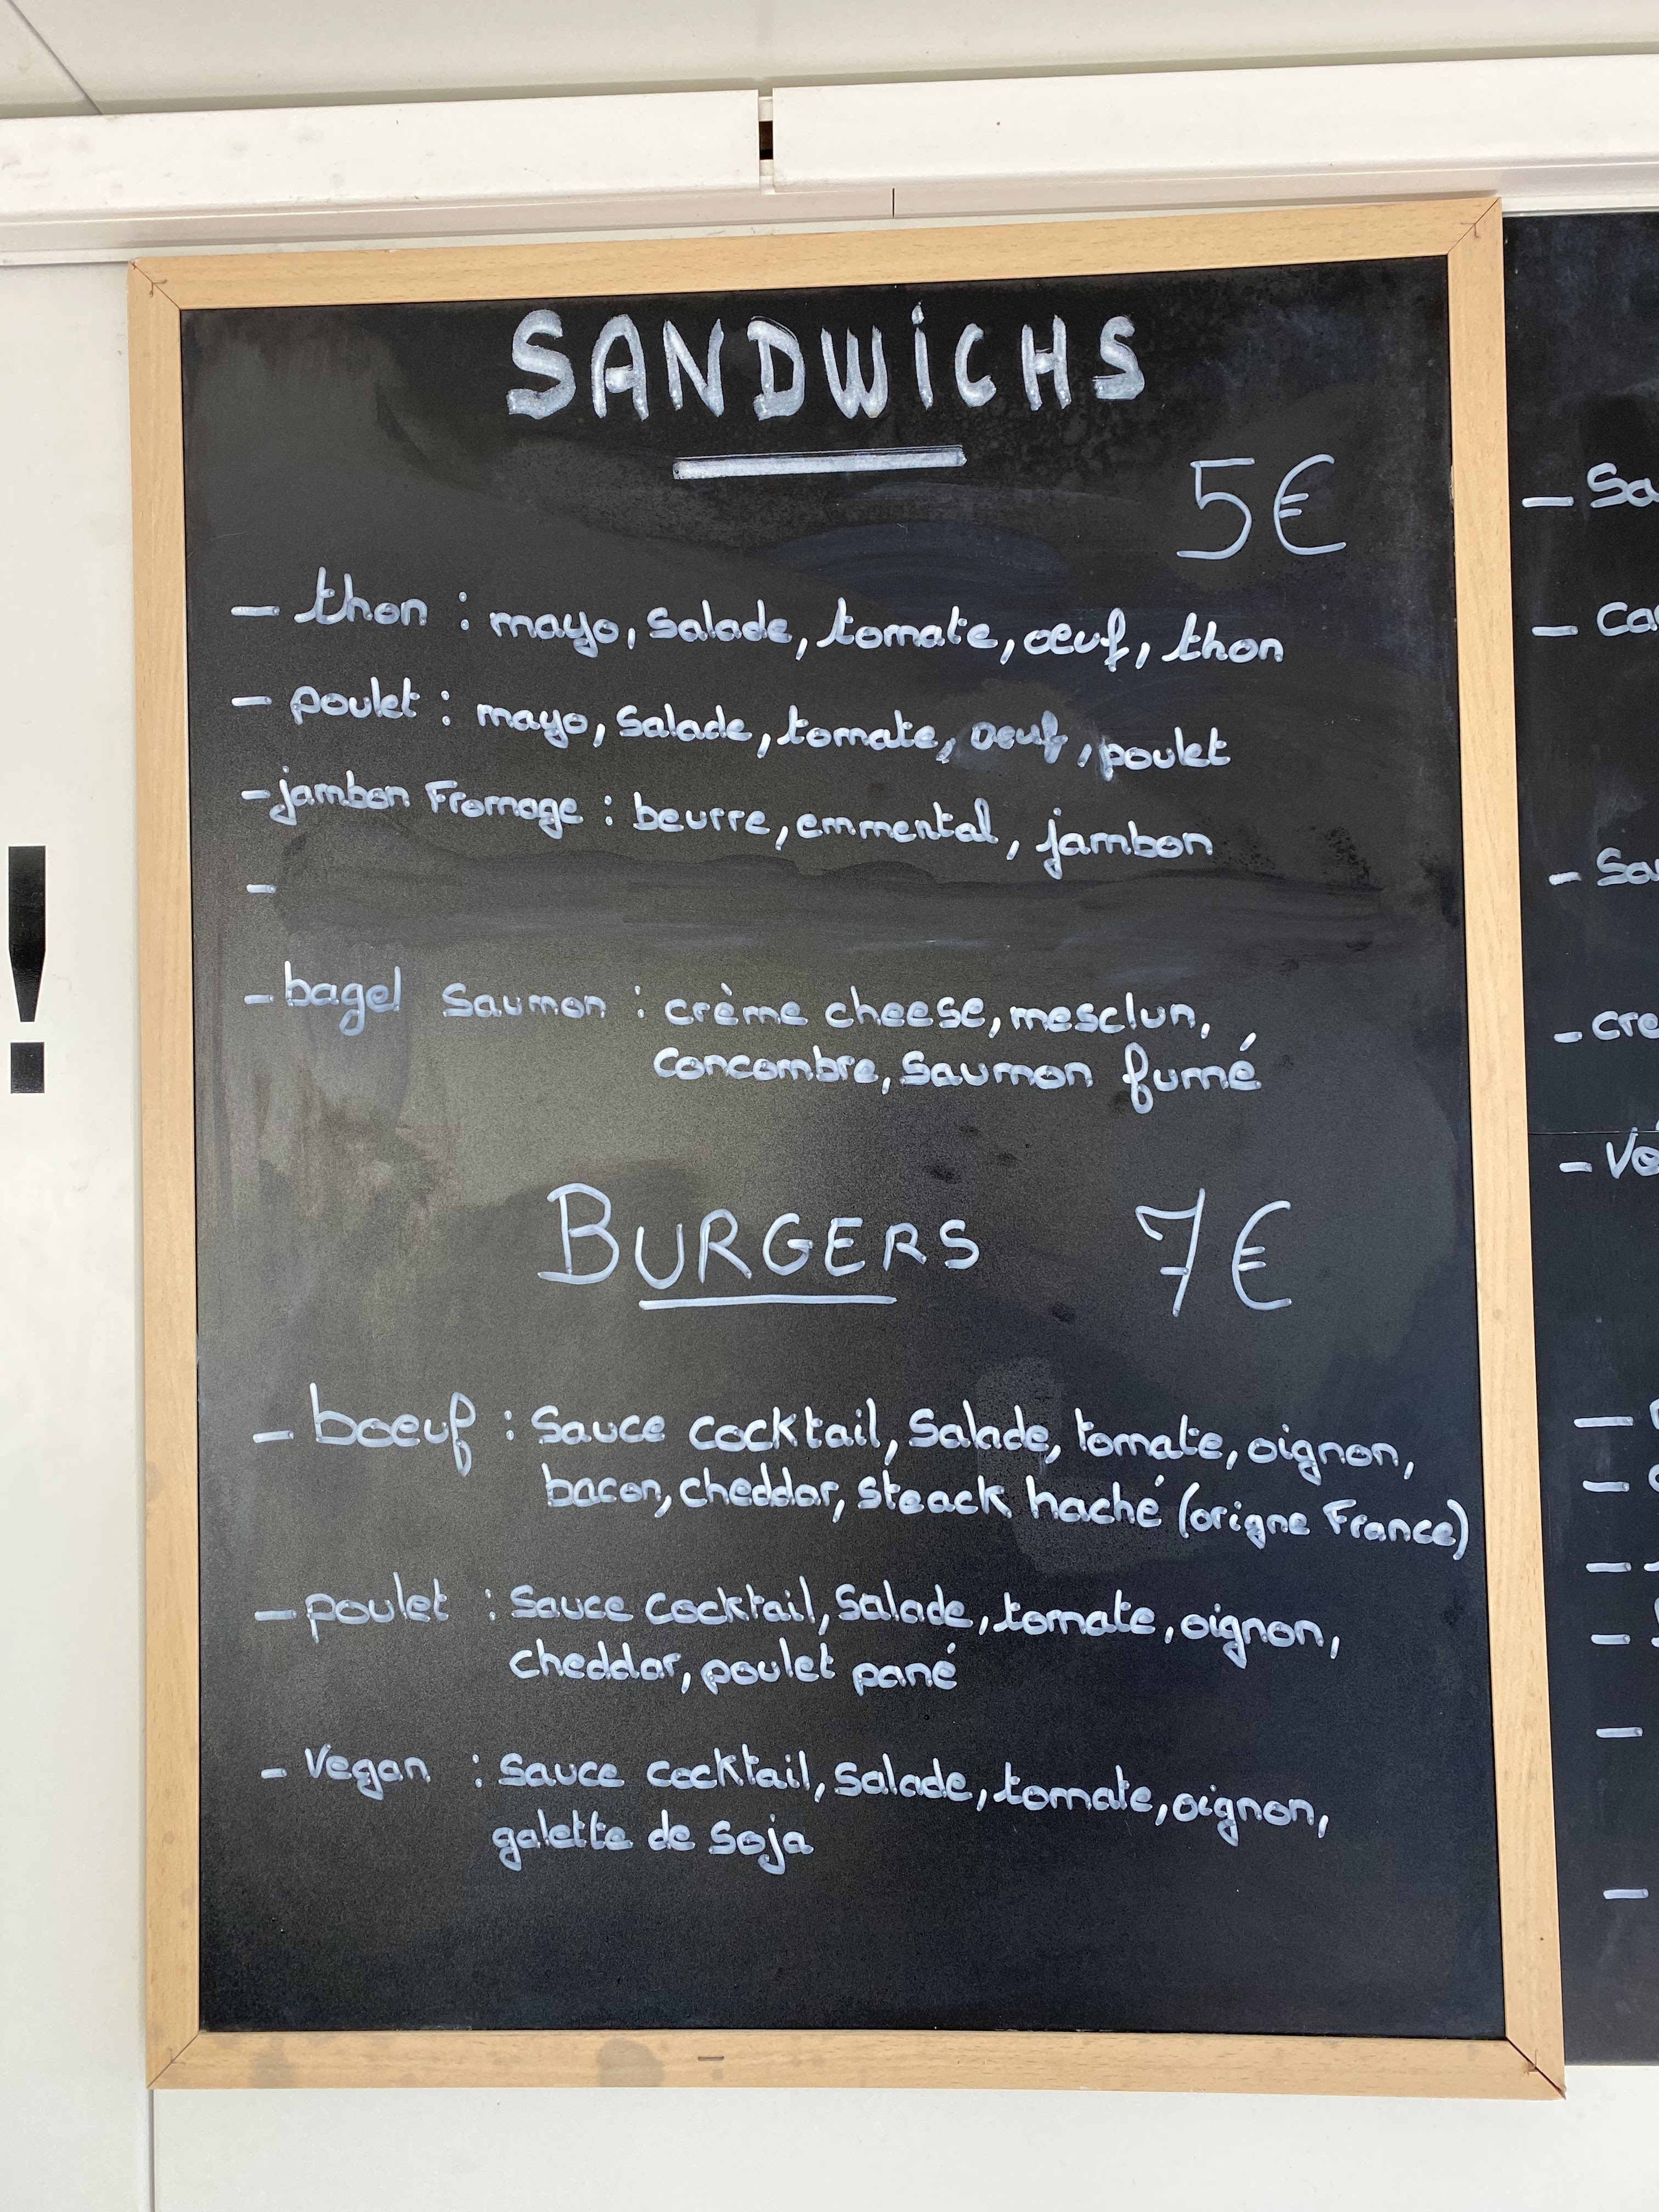 SANDWiCHS
5€
- thon : mayo, salade, tomate, œuf, thon
- poulet : mayo, salade, tomate, oeuf, poulet
- jambon Fromage : beurre, emmental, jambon
-
- bagel saumon : crème cheese, mesclun,
concombre, saumon fumé
BURGERS 7€
- boeuf : sauce cocktail, salade, tomate, oignon,
bacon, cheddar, steack haché (origne France)
- poulet : sauce cocktail, salade, tomate, oignon,
cheddar, poulet pané
- Vegan : sauce cocktail, salade, tomate, oignon,
galette de soja
!
- Sa
- Ca
- Sau
- cre